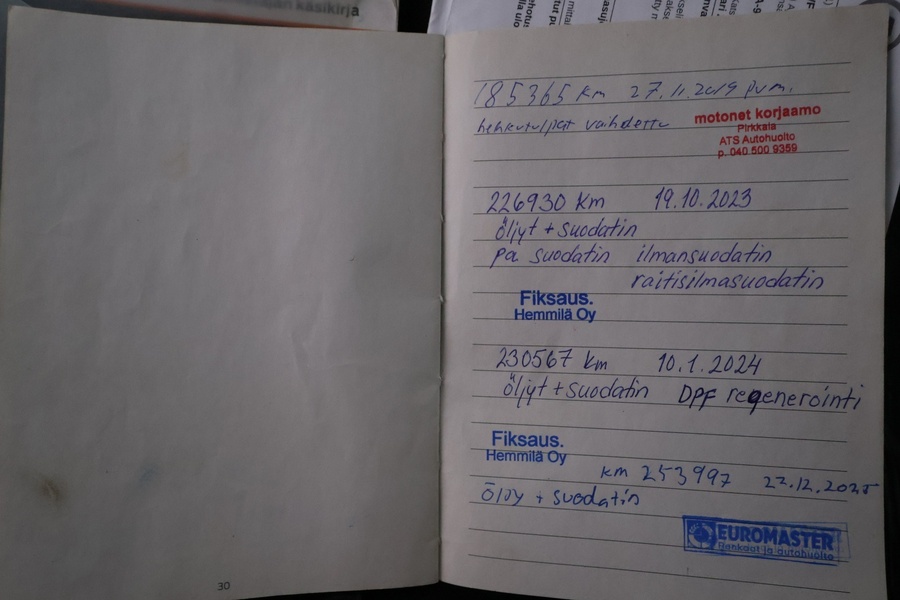 käsikirja
185365 km 27.11.2019 pvm.
hehkutulpat vaihdettu
motonet korjaamo
Pirkkala
ATS Autohuolto
p. 040 500 9359
226930 km 19.10.2023
öljyt + suodatin
pa suodatin ilmansuodatin
raitisilmasuodatin
Fiksaus.
Hemmilä Oy
230567 km 10.1.2024
öljyt + suodatin DPF regenerointi
Fiksaus.
Hemmilä Oy
km 253997 22.12.2025
öljy + suodatin
EUROMASTER
Renkaat ja autohuolto
30